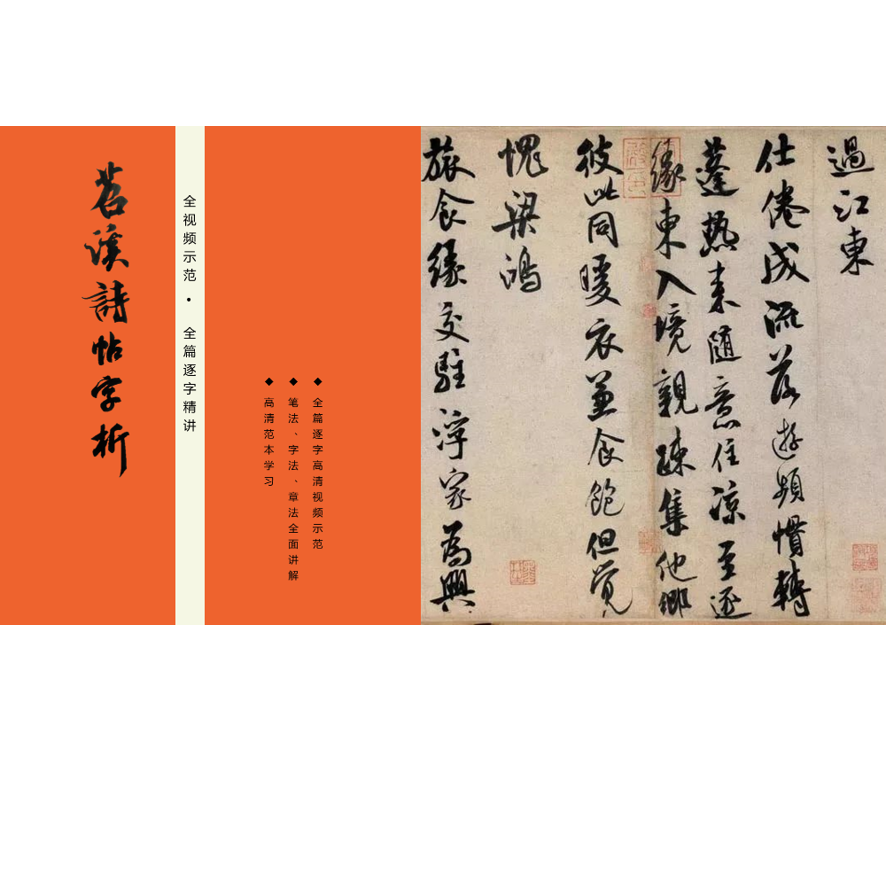 苕溪詩帖字析
全视频示范 • 全篇逐字精讲
◆ 全篇逐字高清视频示范
◆ 笔法、字法、章法全面讲解
◆ 高清范本学习
過江東
仕倦成流落游頻慣轉
蓬熱来随意住凉至逐
緣東入境親疎集他鄉
彼此同暖衣兼食飽但覺
愧梁鴻
旅食緣交駐浮家為興